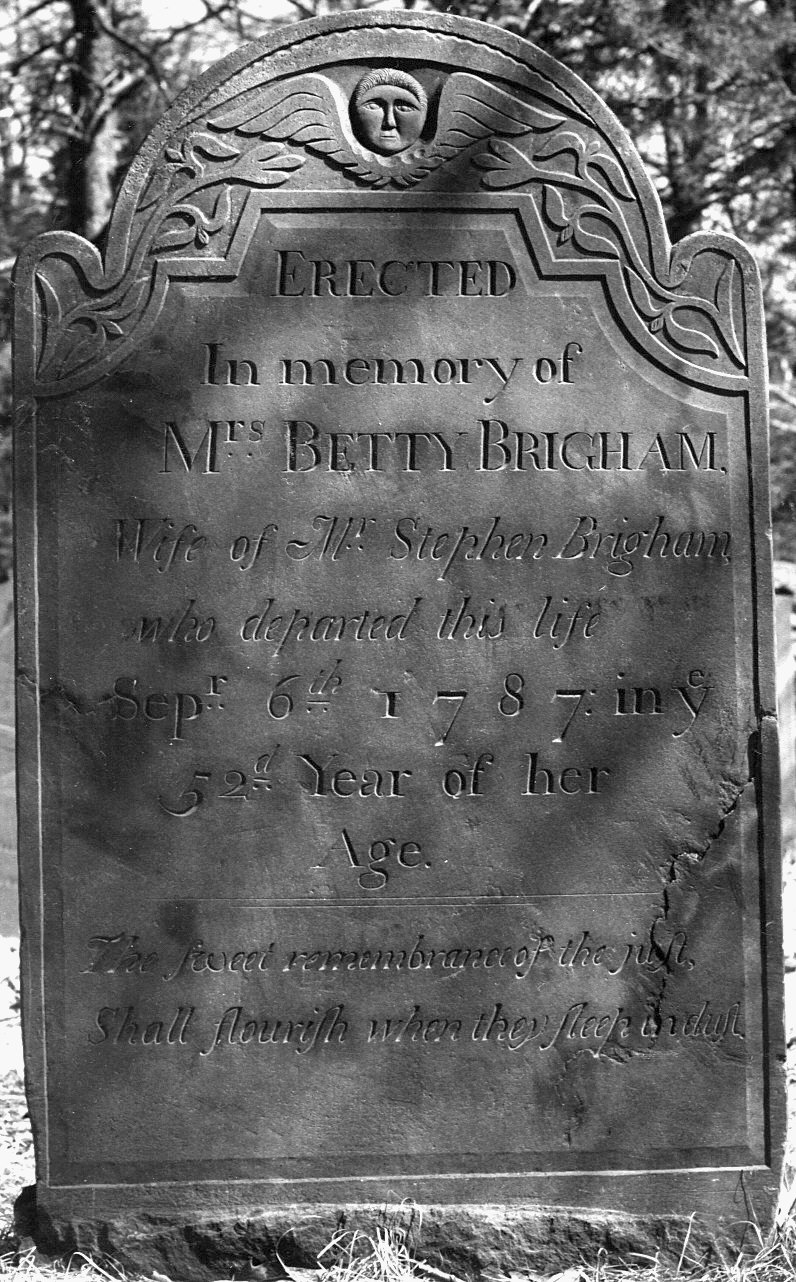 ERECTED
In memory of
Mrs. BETTY BRIGHAM,
Wife of Mr. Stephen Brigham
who departed this life
Sepr. 6th 1787: in ye
52d Year of her
Age.
The ſweet remembrance of the juſt,
Shall flouriſh when they ſleep in duſt.